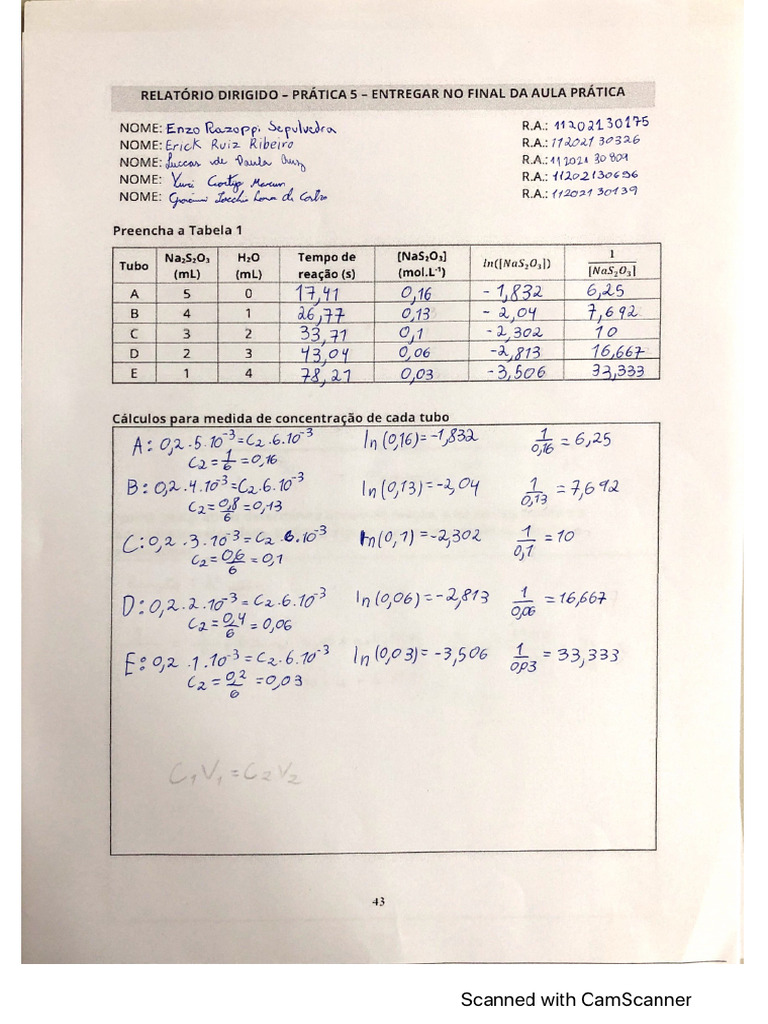 RELATÓRIO DIRIGIDO – PRÁTICA 5 – ENTREGAR NO FINAL DA AULA PRÁTICA
NOME: Enzo Razoppi Sepulvedra R.A.: 11202130175
NOME: Erick Ruiz Ribeiro R.A.: 11202130326
NOME: Luccas de Paula R.A.: 11202130809
NOME: Yuri R.A.: 11202130696
NOME: Giovanni R.A.: 11202130139
Preencha a Tabela 1
Tubo Na₂S₂O₃ (mL) H₂O (mL) Tempo de reação (s) [NaS₂O₃] (mol.L⁻¹) ln([NaS₂O₃]) 1/[NaS₂O₃]
A 5 0 17,41 0,16 -1,832 6,25
B 4 1 26,77 0,13 -2,04 7,692
C 3 2 33,71 0,1 -2,302 10
D 2 3 43,04 0,06 -2,813 16,667
E 1 4 78,21 0,03 -3,506 33,333
Cálculos para medida de concentração de cada tubo
A: 0,2 . 5 . 10⁻³ = C₂ . 6 . 10⁻³ ln(0,16) = -1,832 1/0,16 = 6,25
C₂ = 1/6 = 0,16
B: 0,2 . 4 . 10⁻³ = C₂ . 6 . 10⁻³ ln(0,13) = -2,04 1/0,13 = 7,692
C₂ = 0,8/6 = 0,13
C: 0,2 . 3 . 10⁻³ = C₂ . 6 . 10⁻³ ln(0,1) = -2,302 1/0,1 = 10
C₂ = 0,6/6 = 0,1
D: 0,2 . 2 . 10⁻³ = C₂ . 6 . 10⁻³ ln(0,06) = -2,813 1/0,06 = 16,667
C₂ = 0,4/6 = 0,06
E: 0,2 . 1 . 10⁻³ = C₂ . 6 . 10⁻³ ln(0,03) = -3,506 1/0,03 = 33,333
C₂ = 0,2/6 = 0,03
C₁V₁ = C₂V₂
43
Scanned with CamScanner